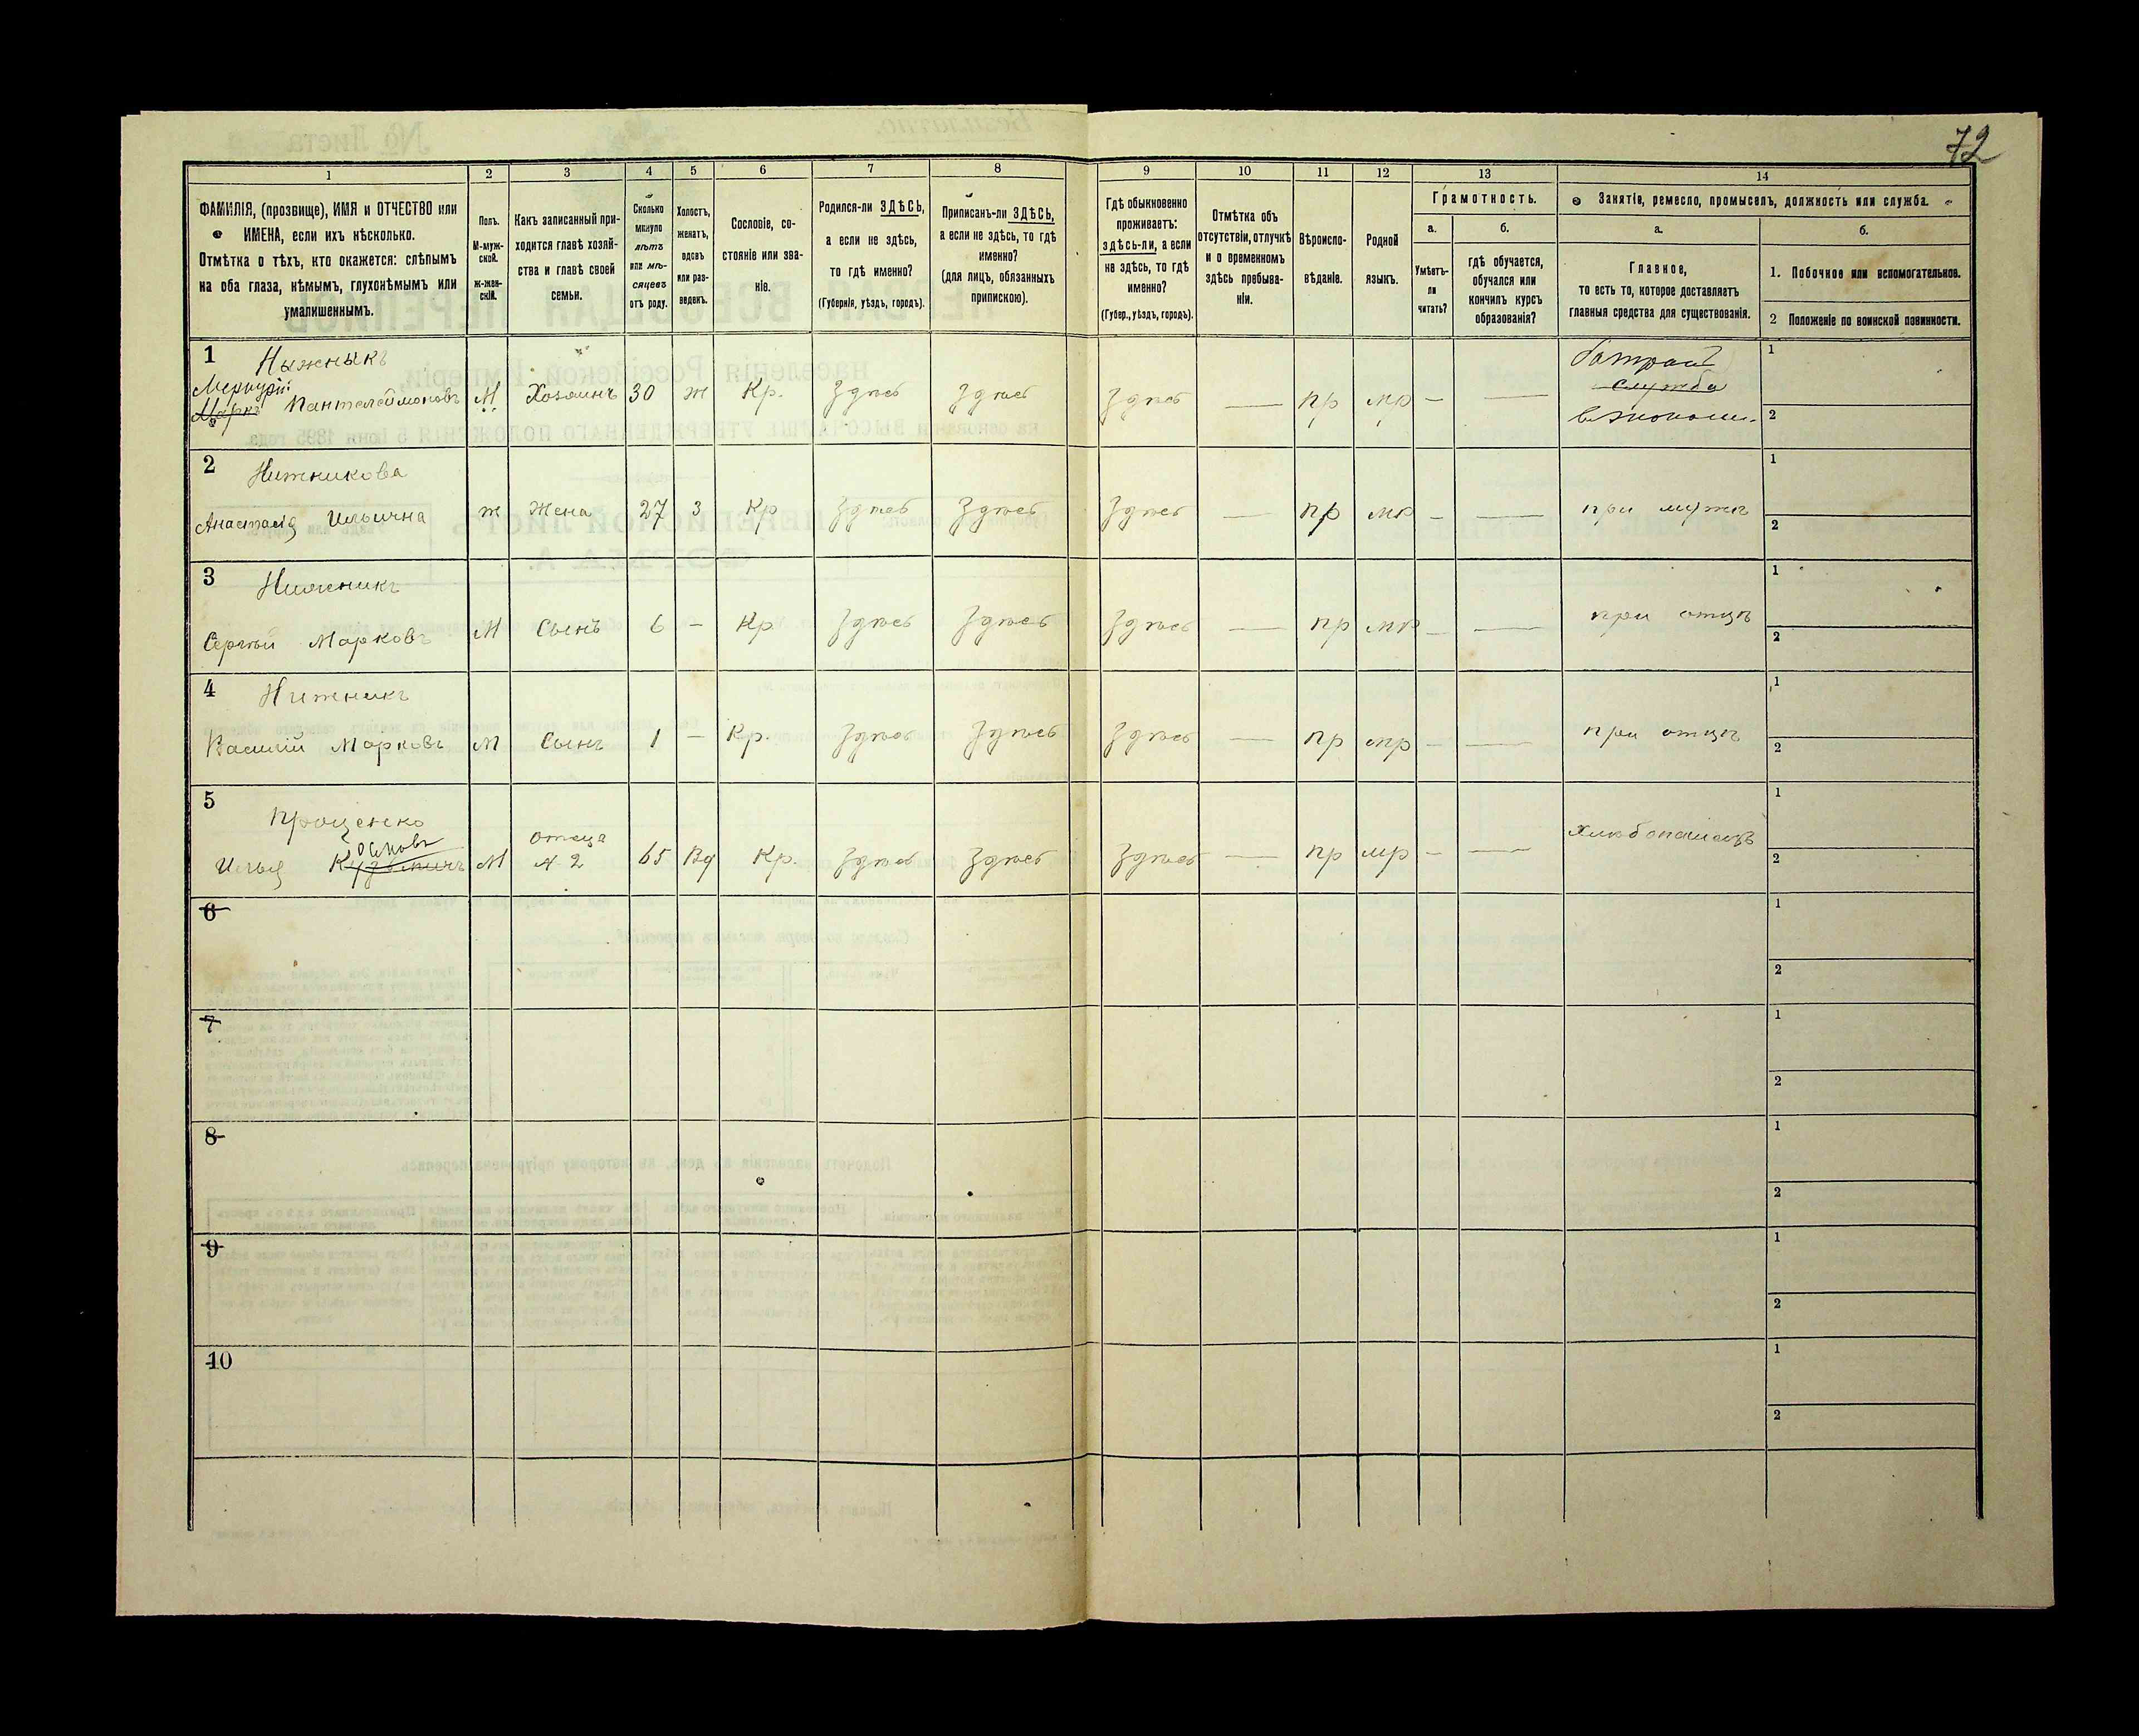 72
1 2 3 4 5 6 7 8 9 10 11 12 13 14
ФАМИЛІЯ, (прозвище), ИМЯ и ОТЧЕСТВО или
ИМЕНА, если ихъ нѣсколько.
Отмѣтка о тѣхъ, кто окажется: слѣпымъ
на оба глаза, нѣмымъ, глухонѣмымъ или
умалишеннымъ.
Полъ.
М-муж-
ской.
ж-жен-
скій.
Какъ записанный при-
ходится главѣ хозяй-
ства и главѣ своей
семьи.
Сколько
минуло
лѣтъ
или мѣ-
сяцевъ
отъ роду.
Холостъ,
женатъ,
вдовъ
или раз-
веденъ.
Сословіе, со-
стояніе или зва-
ніе.
Родился-ли ЗДѢСЬ,
а если не здѣсь,
то гдѣ именно?
(Губернія, уѣздъ, городъ).
Приписанъ-ли ЗДѢСЬ,
а если не здѣсь, то гдѣ
именно?
(для лицъ, обязанныхъ
припискою).
Гдѣ обыкновенно
проживаетъ:
здѣсь-ли, а если
не здѣсь, то гдѣ
именно?
(Губер., уѣздъ, городъ).
Отмѣтка объ
отсутствіи, отлучкѣ
и о временномъ
здѣсь пребыва-
ніи.
Вѣроиспо-
вѣданіе.
Родной
языкъ.
Грамотность.
а.
Умѣетъ-
ли
читать?
б.
гдѣ обучается,
обучался или
кончилъ курсъ
образованія?
Занятіе, ремесло, промыселъ, должность или служба.
а.
Главное,
то есть то, которое доставляетъ
главныя средства для существованія.
б.
1. Побочное или вспомогательное.
2 Положеніе по воинской повинности.
1 Ныжныкъ
Меркурій
Маркъ Пантелеймоновъ М Хозяинъ 30 ж Кр. Здѣсь Здѣсь Здѣсь — пр мр — —
батрак
служба
в эконом.
1
2
2 Нижникова
Анастасія Ильична ж Жена 27 З Кр Здѣсь Здѣсь Здѣсь — пр мр — — при мужѣ
1
2
3 Нижникъ
Сергѣй Марковъ М Сынъ 6 — Кр. Здѣсь Здѣсь Здѣсь — пр мр — — при отцѣ
1
2
4 Нижникъ
Василій Марковъ М Сынъ 1 — Кр. Здѣсь Здѣсь Здѣсь — пр мр — — при отцѣ
1
2
5 Проценко
Илья Кузьмичъ М отецъ
№ 2 65 Вд Кр. Здѣсь Здѣсь Здѣсь — пр мр — — хлѣбопашецъ
1
2
6
1
2
7
1
2
8
1
2
9
1
2
10
1
2